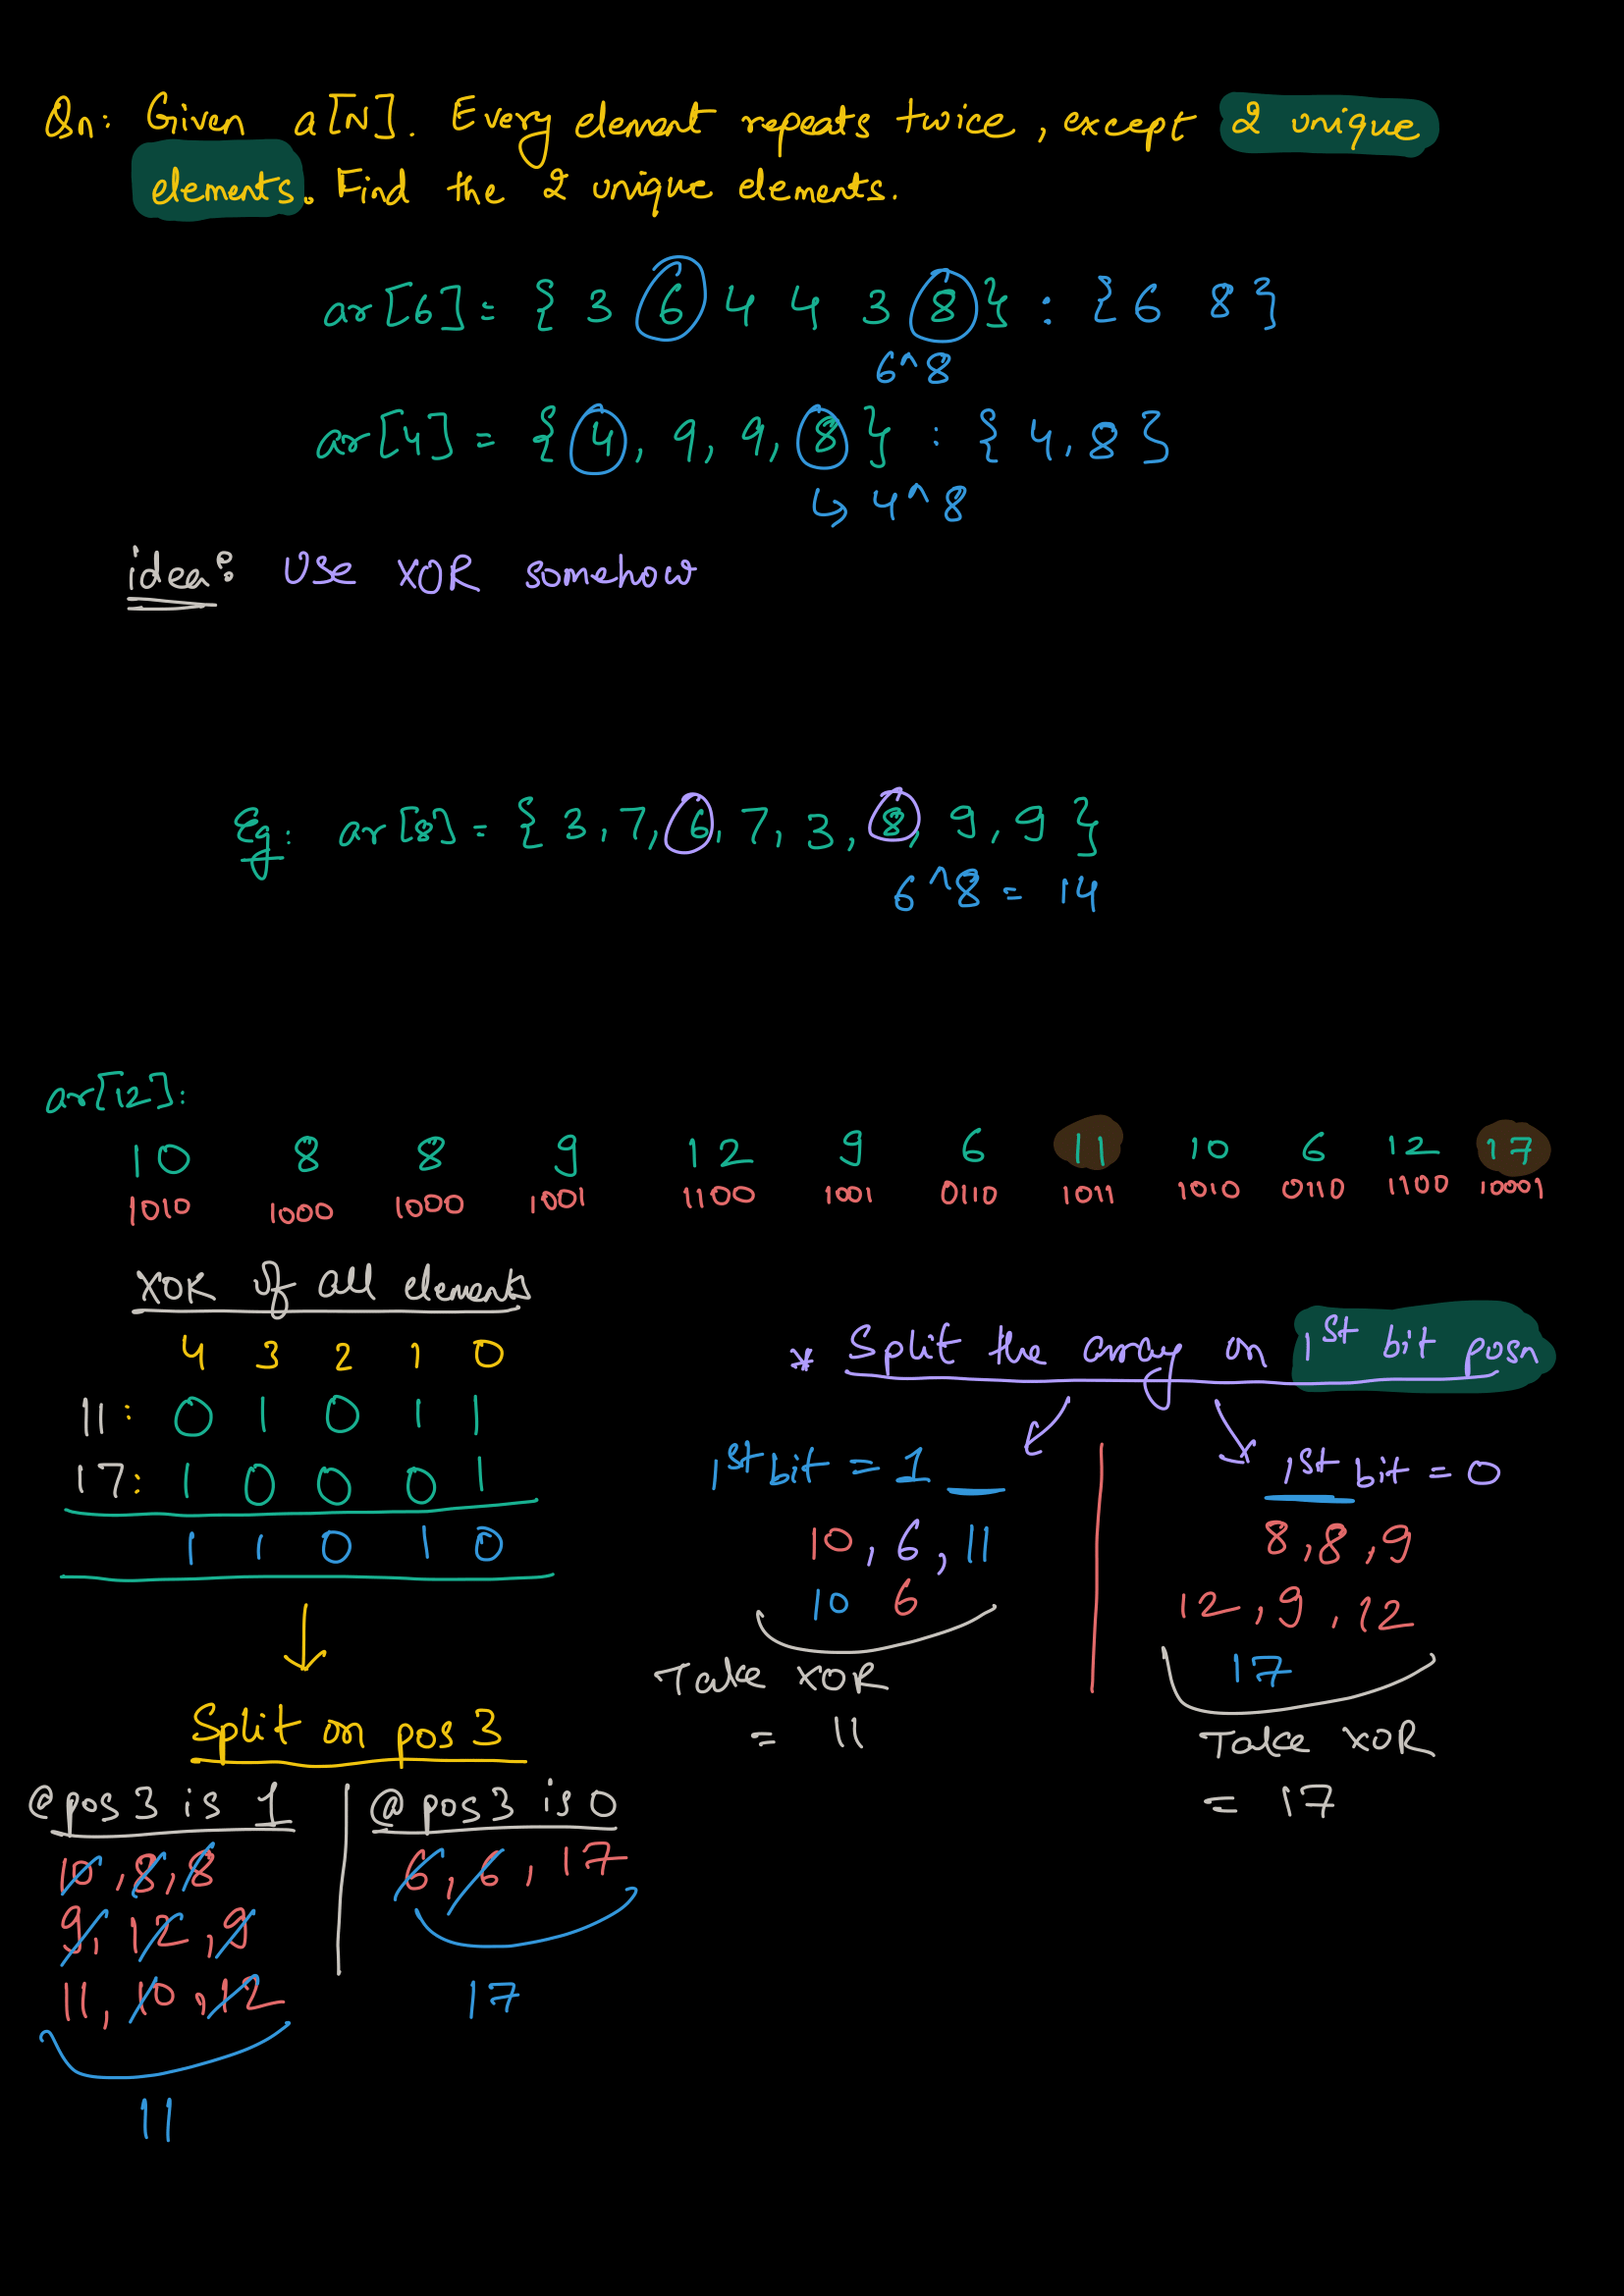 Qn: Given a[N]. Every element repeats twice, except 2 unique
elements. Find the 2 unique elements.
ar[6] = { 3 6 4 4 3 8 } : { 6 8 }
6^8
ar[4] = { 4, 9, 9, 8 } : { 4, 8 }
↳ 4^8
idea: Use XOR somehow
Eg: ar[8] = { 3, 7, 6, 7, 3, 8, 9, 9 }
6^8 = 14
ar[12]:
10 8 8 9 12 9 6 11 10 6 12 17
1010 1000 1000 1001 1100 1001 0110 1011 1010 0110 1100 10001
XOR of all elements
4 3 2 1 0
11: 0 1 0 1 1
17: 1 0 0 0 1
1 1 0 1 0
Split on pos 3
@pos 3 is 1
10, 8, 8
9, 12, 9
11, 10, 12
11
@pos 3 is 0
6, 6, 17
17
* Split the array on 1st bit posn
1st bit = 1
10, 6, 11
10 6
Take XOR
= 11
1st bit = 0
8, 8, 9
12, 9, 12
17
Take XOR
= 17